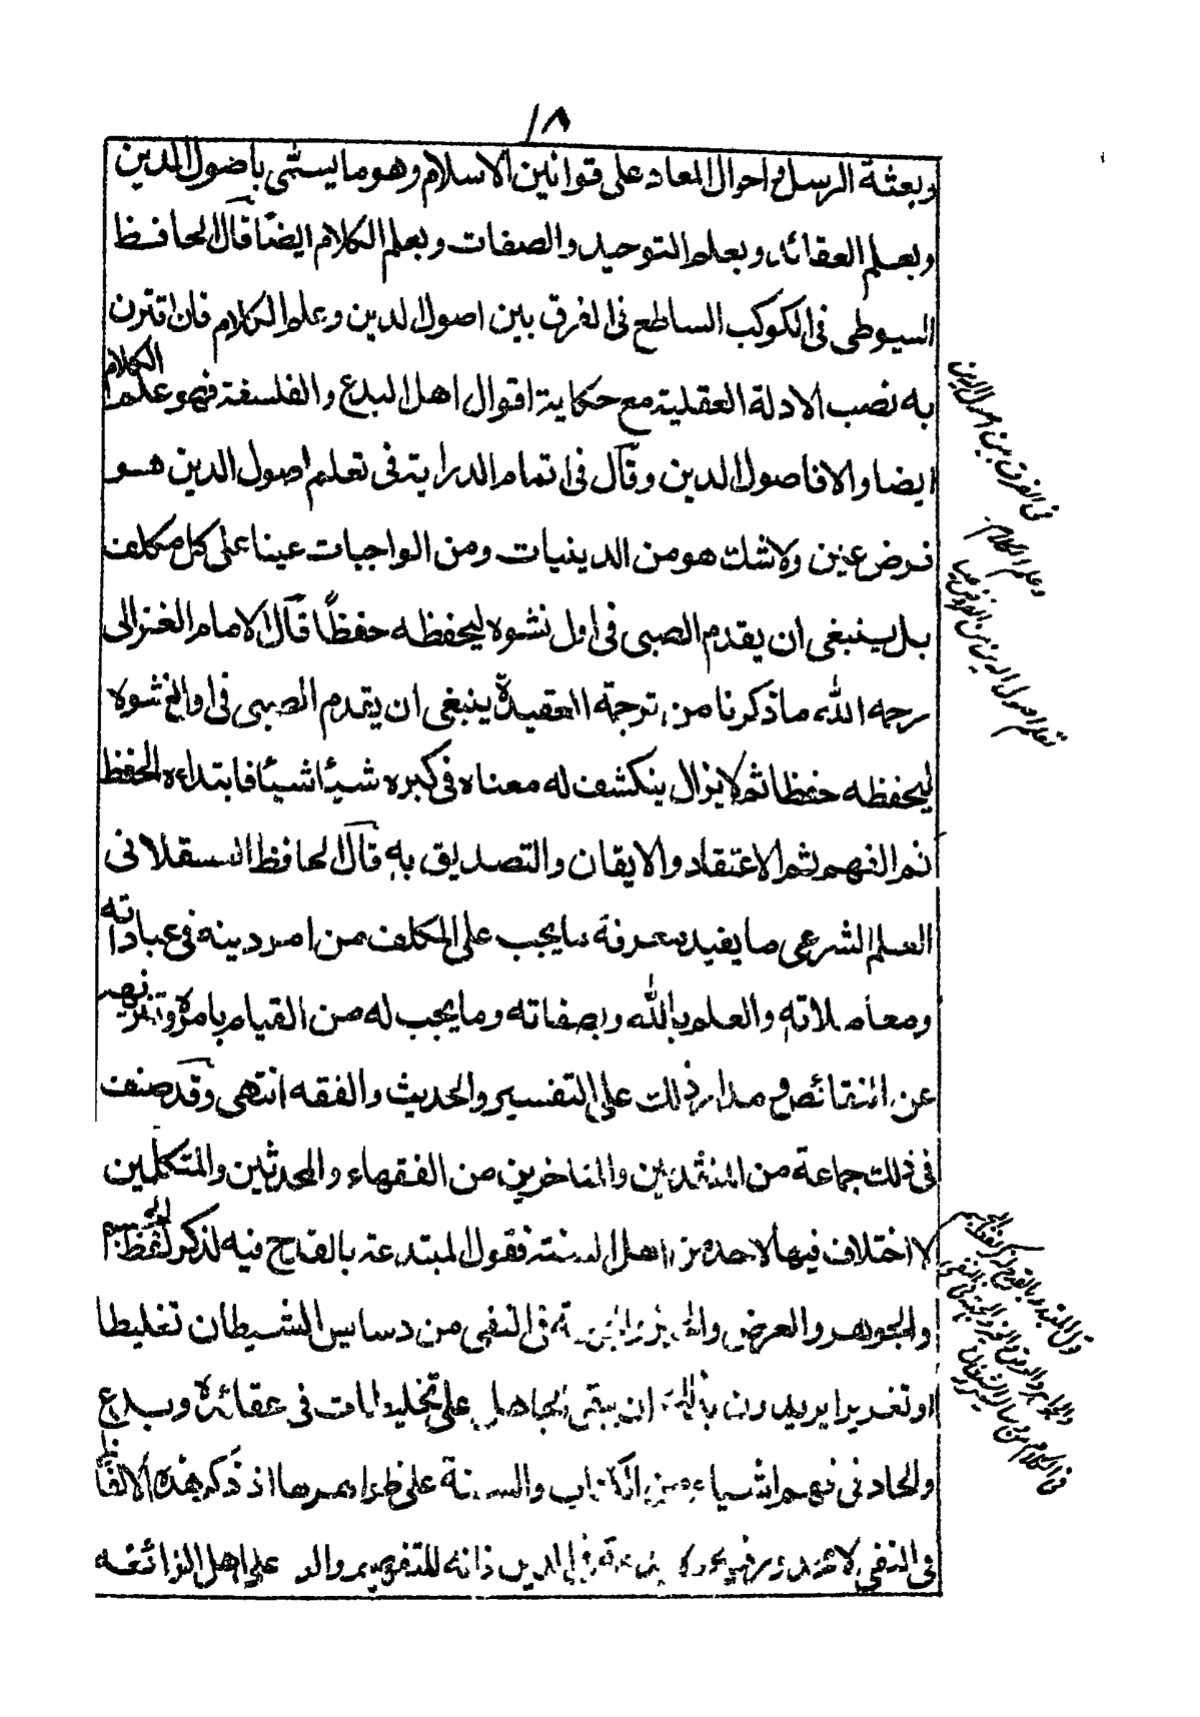 ١٨
وبعثة الرسل واحوال المعاد على قوانين الاسلام وهو ما يسمى باصول الدين
وبعلم العقائد وبعلم التوحيد والصفات وبعلم الكلام ايضا قال الحافظ
السيوطى فى الكوكب الساطع فى الفرق بين اصول الدين وعلم الكلام فان اقترن
به نصب الادلة العقلية مع حكاية اقوال اهل البدع والفلسفة فهو علم الكلام
ايضا والا فاصول الدين وقال فى اتمام الدراية فى تعلم اصول الدين هو
فرض عين ولا شك هو من الدينيات ومن الواجبات عينا على كل مكلف
بل ينبغى ان يقدم الصبى فى اول نشوه ليحفظه حفظا قال الامام الغزالى
رحمه الله ما ذكرنا من ترجمة العقيدة ينبغى ان يقدم الصبى فى اوائل نشوه
ليحفظه حفظا ثم لا يزال ينكشف له معناه فى كبره شيئا شيئا فابتداءه الحفظ
ثم الفهم ثم الاعتقاد والايقان والتصديق به قال الحافظ العسقلانى
العلم الشرعى ما يفيد معرفة ما يجب على المكلف من امر دينه فى عباداته
ومعاملاته والعلم بالله وبصفاته وما يجب له من القيام بامره وتنزيهه
عن النقائص ومدار ذلك على التفسير والحديث والفقه انتهى وقد صنف
فى ذلك جماعة من المتقدمين والمتاخرين من الفقهاء والمحدثين والمتكلمين
لا اختلاف فيها لاحد من اهل السنة فقول المبتدعة بالقدح فيه لذكر لفظ الجسم
والجوهر والعرض والحيز والجهة فى النفى من دسايس الشيطان تغليطا
او تغديرا يريدون بذلك ان يبقى الجاهل على تخليطات فى عقائده وبدع
والحاد فى فهم اشياء من الكتاب والسنة على ظواهرها اذ ذكر هذه الالفاظ
فى النفى لا فى الدين فانه للتفهيم والرد على اهل الزائغه
فى الفرق بين اصول الدين
وعلم الكلام
تعلم اصول الدين من الفروض عينا